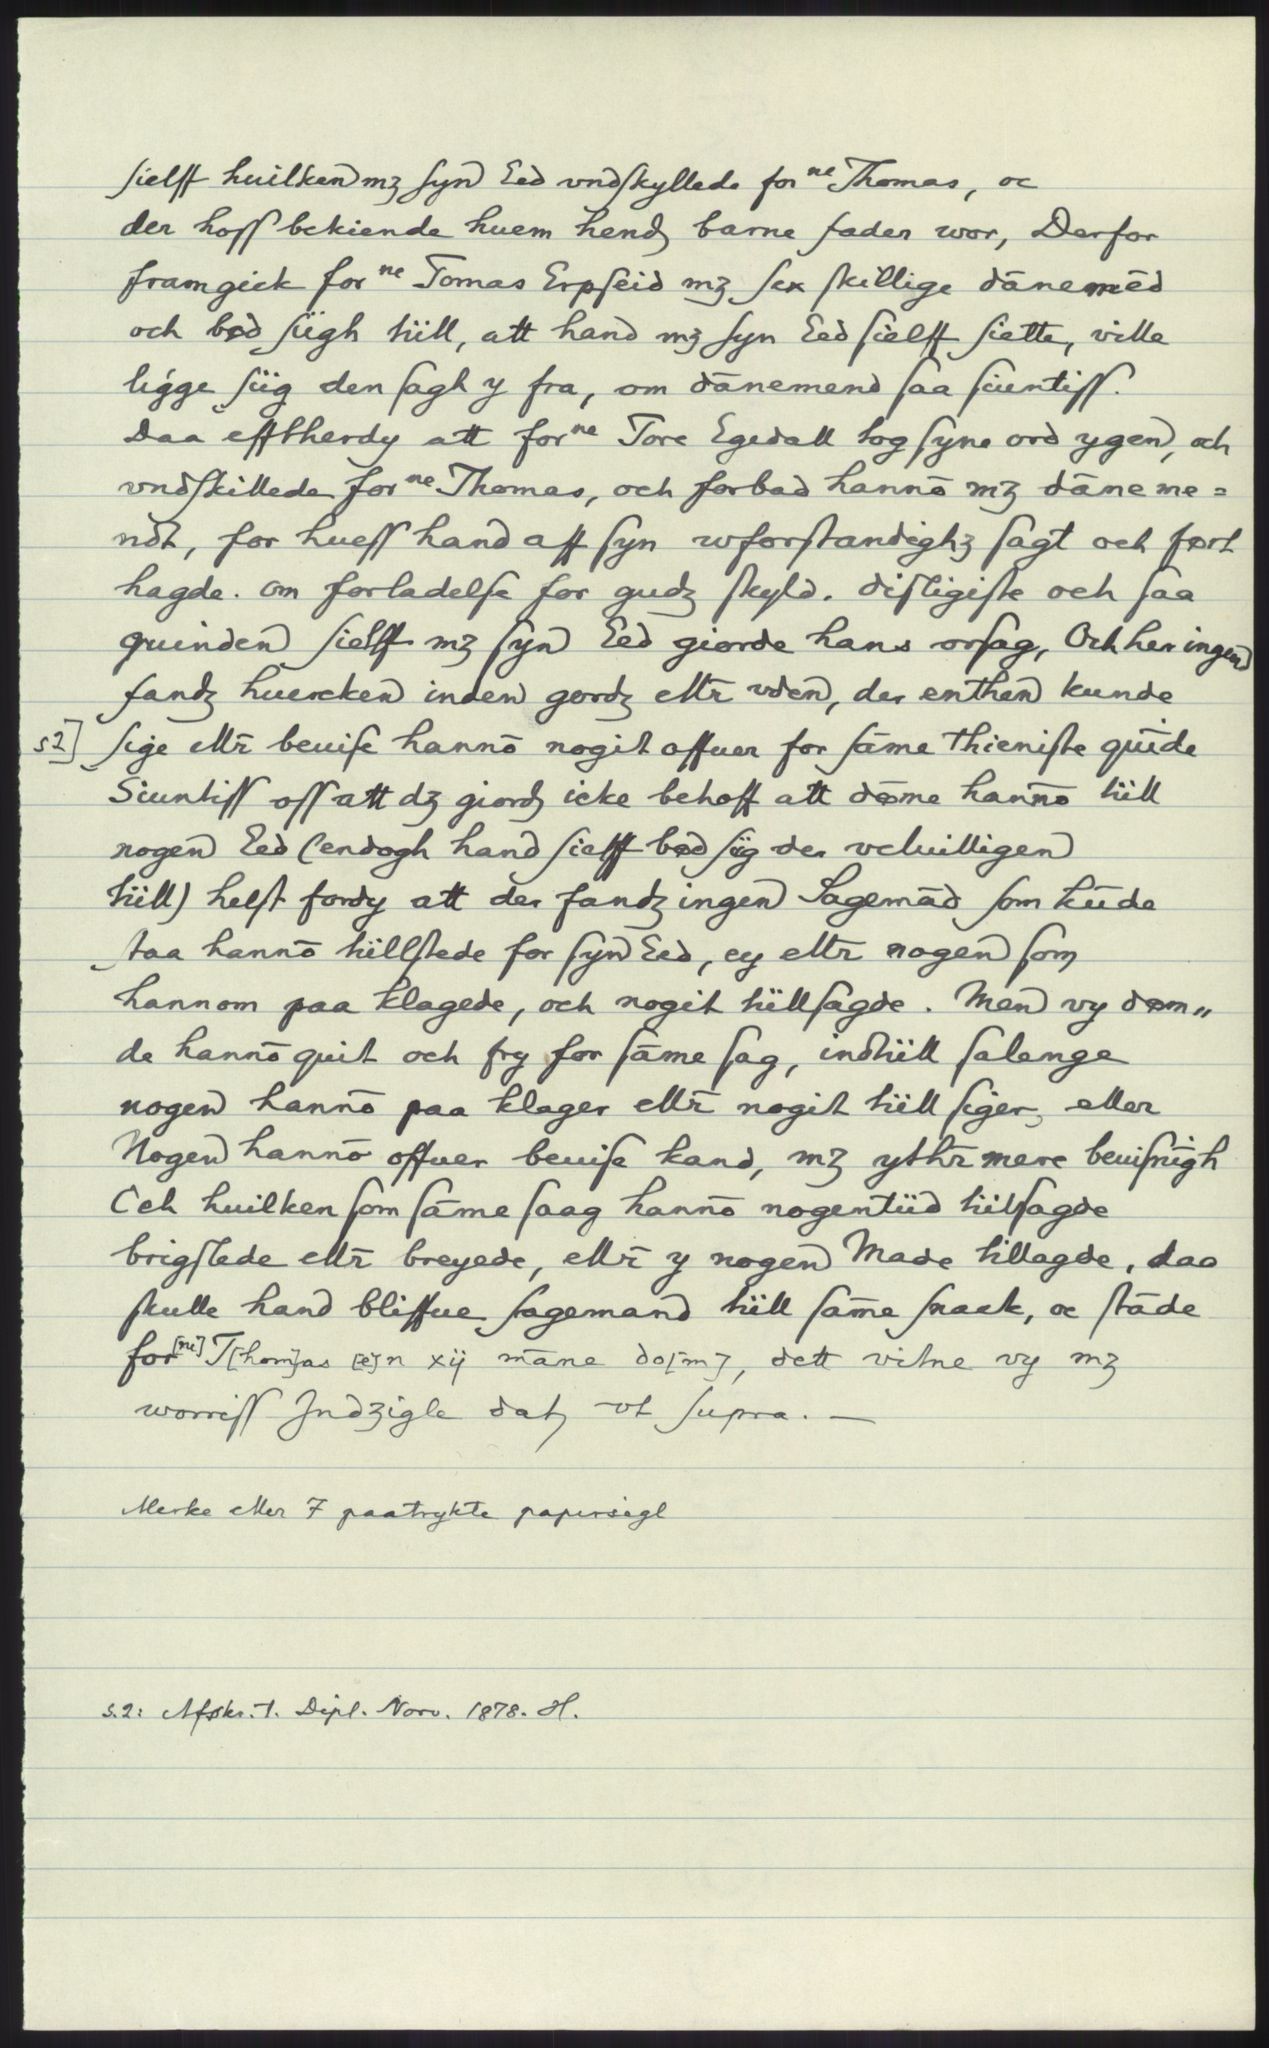 sielff huilken mꝫ syn Eed vndskyllede forⁿᵉ Thomas, oc
der hoss bekiende huem hendꝫ barne fader wor, Derfor
framgick forⁿᵉ Tomas Erpseid mꝫ sex skillige dānemēd
och bød siigh tiill, att hand mꝫ syn Eed sielff siette, ville
ligge siig den sagh y fra, om dānemend saa siuntiss.
Daa effthherdy att forⁿᵉ Tore Egedall tog syne ord ygen, och
vndskillede forⁿᵉ Thomas, och forbad hannō mꝫ dāneme=
ndt, for huess hand aff syn wforstandighꝫ sagt och ført
hagde. om forladelse for gudꝫ skyld. disligiste och saa
quinden sielff mꝫ syn Eed giorde hans orsag, Och her ingen
fandꝫ huercken inden gordꝫ ellr̄ vden, der enthen kunde
s2] sige ellr̄ beuise hannō nogit offuer for sāme thieniste quīde
Siuntiss oss att dꝫ giordꝫ icke behoff att døme hannō tiill
nogen Eed (endogh hand sielff bød siig der veluilligen
tiill) helst fordy att der fandꝫ ingen Sagemād som kūde
staa hannō tiillstede for syn Eed, ey ellr̄ nogen som
hannom paa klagede, och nogit tiillsagde. Men vy døm„
de hannō quit och fry for sāme sag, indtiill salenge
nogen hannō paa klager ellr̄ nogit tiill siger, eller
Nogen hannō offuer beuise kand, mꝫ ythr̄mere beuisnīgh
Och huilken som sāme saag hannō nogentiid tiilsagde
brigslede ellr̄ breyede, ellr̄ y nogen Made tillagde, daa
skulle hand bliffue sagemand tiill sāme snack, oc stāde
for[ⁿᵉ] T[hom]as [e]n xij māne do[m], dett vitne vy mꝫ
worriss Indzigle datꝫ vt supra. —
Merke eller 7 paatrykte papirsegl
s.2: Afskr. t. Dipl. Norv. 1878. H.